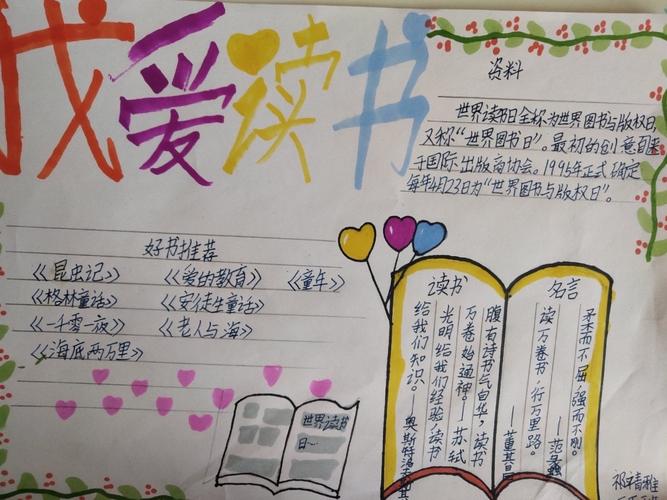 我爱读书
资料
世界读书日全称为世界图书与版权日,
又称“世界图书日”。最初的创意自来
于国际出版商协会。1995年正式确定
每年4月23日为“世界图书与版权日”。
好书推荐
《昆虫记》 《爱的教育》 《童年》
《格林童话》 《安徒生童话》
《一千零一夜》 《老人与海》
《海底两万里》
世界读书
日…
读书
名言
矛柔而不屈,强而不刚。
——范蠡
读万卷书,行万里路。
——董其昌
腹有诗书气自华,读书
万卷始通神。——苏轼
光明给我们经验,读书
给我们知识。
——奥斯特洛夫斯基